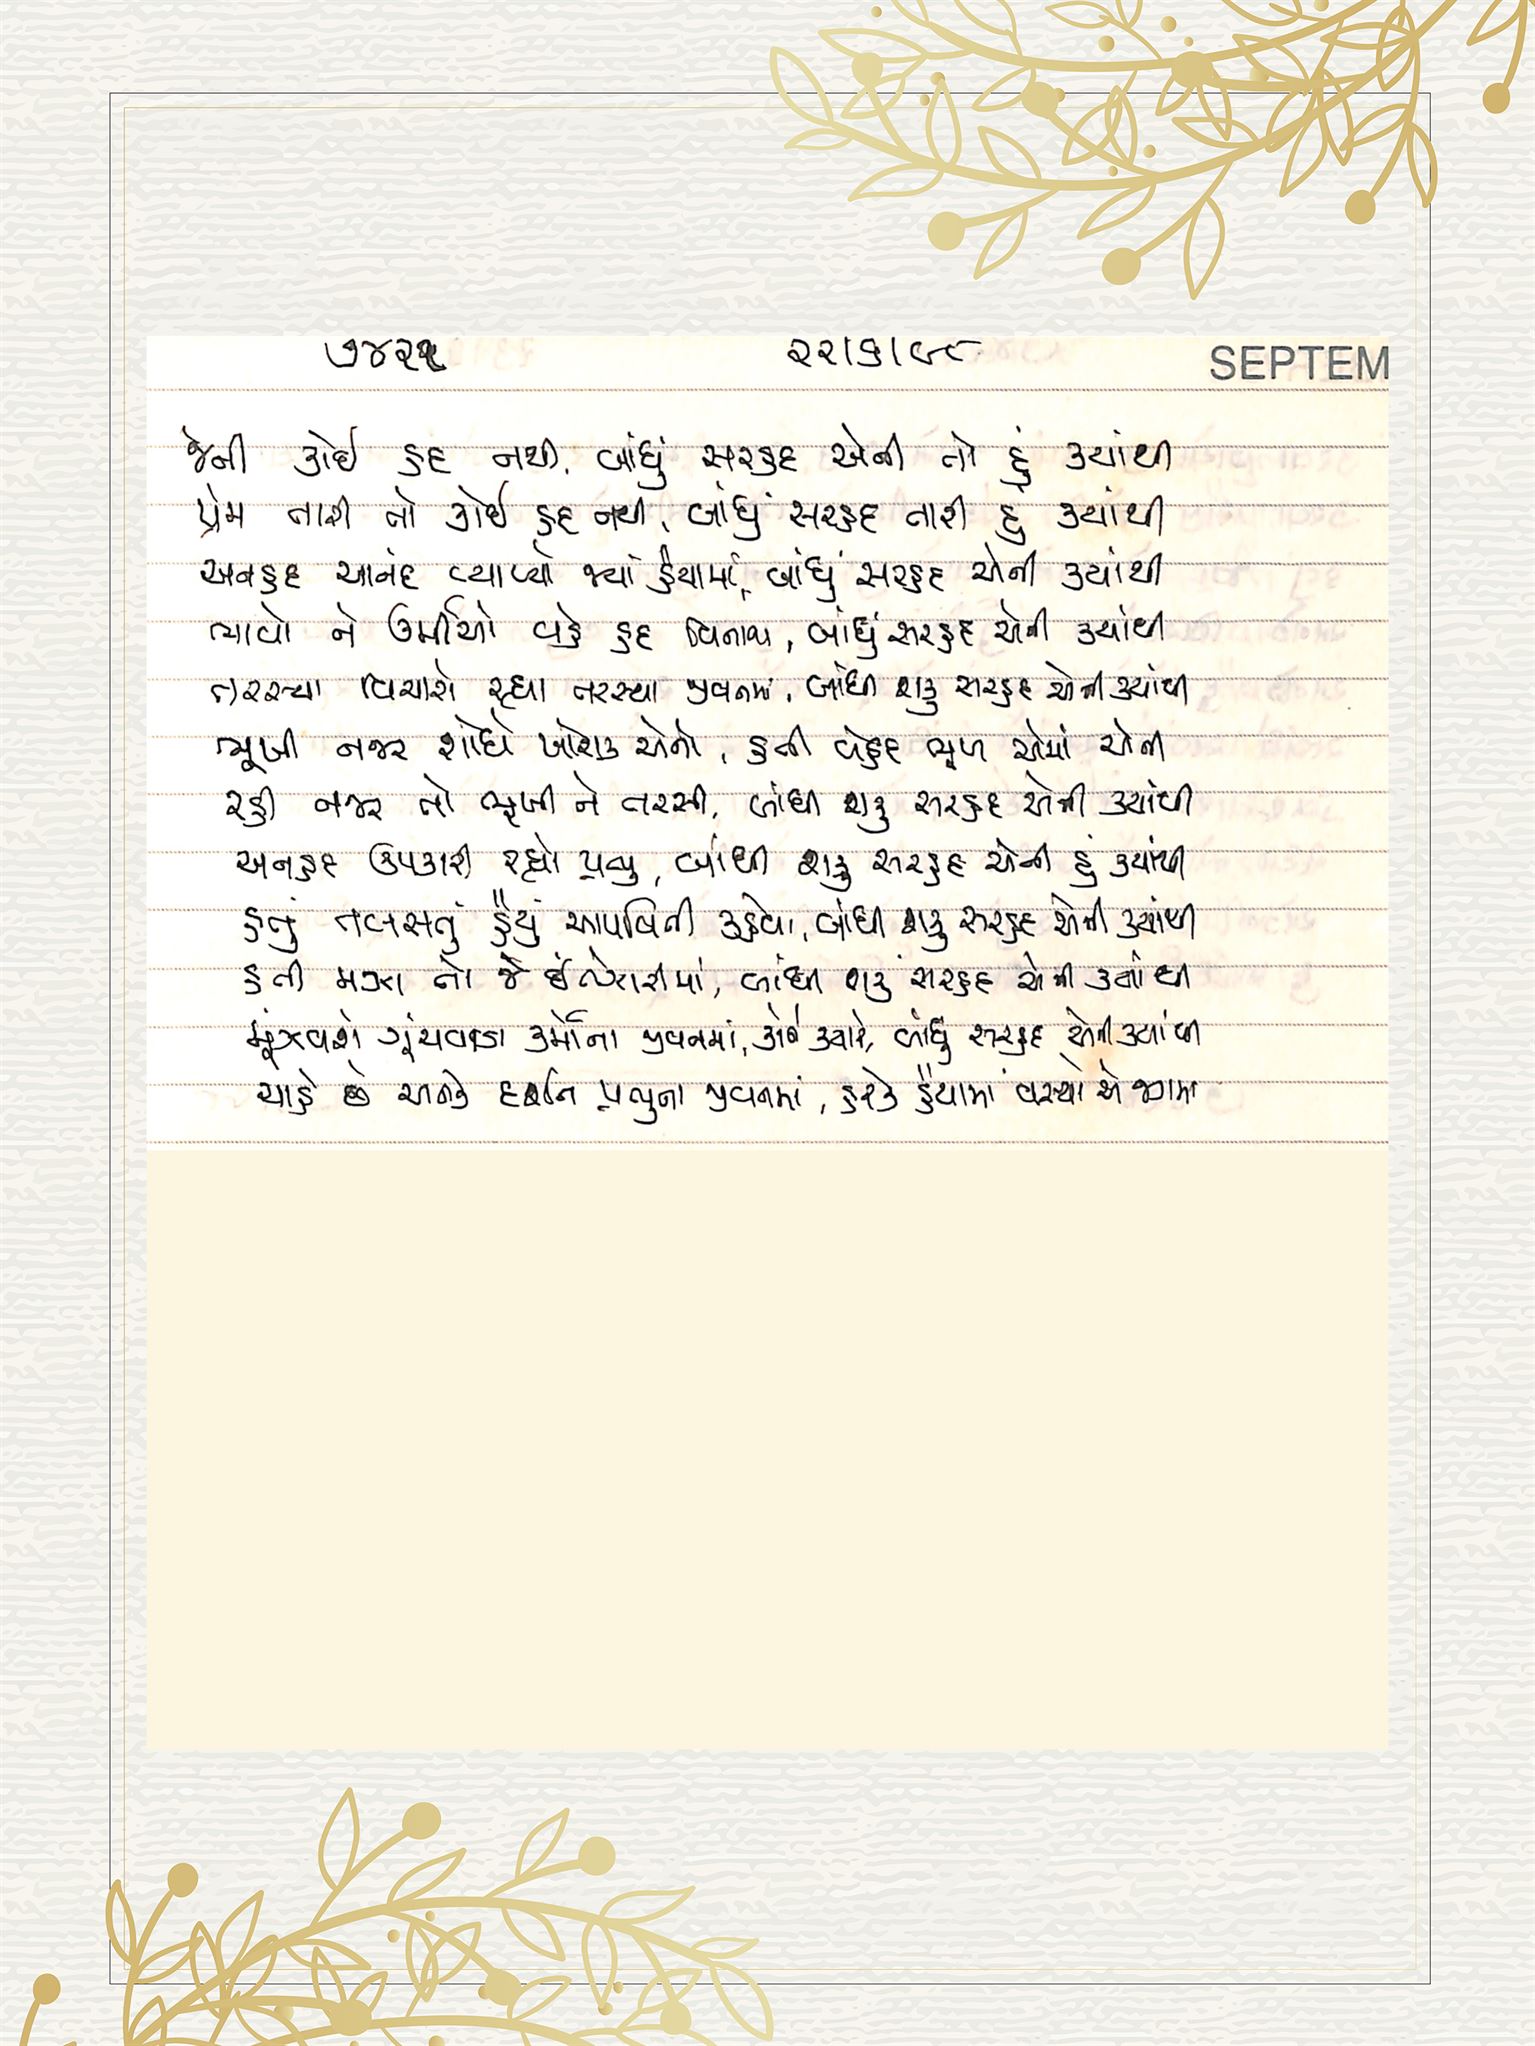 ૭૪૨૨ ૨૨|૬|૯૮ SEPTEM
જેની કોઈ હદ નથી, બાંધું સરહદ એની તો હું ક્યાંથી
પ્રેમ તારી તો કોઈ હદ નથી, બાંધું સરહદ તારી હું ક્યાંથી
અનહદ આનંદ વ્યાપ્યો જ્યાં હૈયામાં, બાંધું સરહદ એની ક્યાંથી
ભાવો ને ઉર્મીઓ વહે હદ વિનાના, બાંધું સરહદ એની ક્યાંથી
તરસ્યા વિચારો રહ્યા તરસ્યા જીવનમાં, બાંધી શકું સરહદ એની ક્યાંથી
ભૂખી નજર શોધે ખોરાક એનો, હતી બેહદ ભૂખ એમાં એની
રહી નજર તો ભૂખી ને તરસી, બાંધી શકું સરહદ એની ક્યાંથી
અનહદ ઉપકારી રહ્યો પ્રભુ, બાંધી શકું સરહદ એની હું ક્યાંથી
હતું તલસતું હૈયું આપવિતી કહેવા, બાંધી શકું સરહદ એની ક્યાંથી
હતી મઝા તો જે ઈંતેજારીમાં, બાંધી શકું સરહદ એની ક્યાંથી
મૂંઝવશે ગૂંચવાડા કર્મોના જીવનમાં, કોઈ ક્યારે, બાંધું સરહદ એની ક્યાંથી
ચાહે છે અનેક દર્શન પ્રભુના જીવનમાં, હરેક હૈયામાં વસ્યો એ જગમા